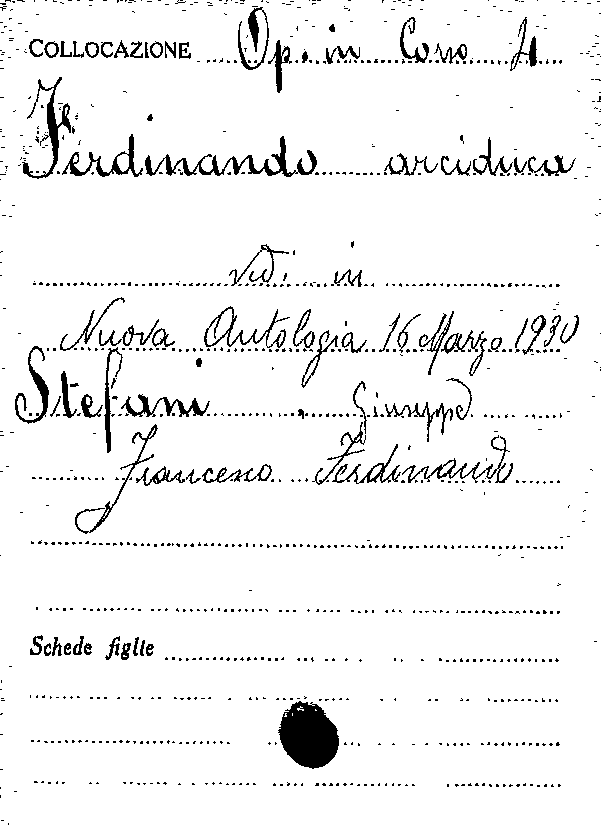 COLLOCAZIONE Op. in Corso 4
Ferdinando arciduca
vedi in
Nuova Antologia 16 Marzo 1930
Stefani, Giuseppe
Francesco Ferdinando
Schede figlie